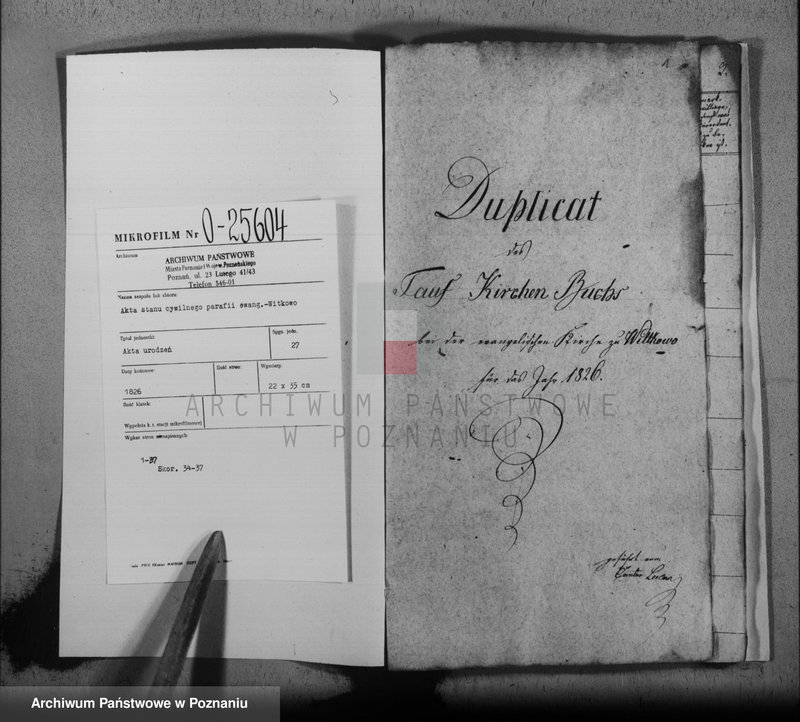 MIKROFILM Nr 0-25604
Archiwum
ARCHIWUM PAŃSTWOWE
Miasta Poznania i Wojew. Poznańskiego
Poznań, ul. 23 Lutego 41/43
Telefon 546-01
Nazwa zespołu lub zbioru:
Akta stanu cywilnego parafii ewang.-Witkowo
Tytuł jednostki:
Akta urodzeń
Sygn. jedn.
27
Daty końcowe:
1826
Ilość stron:
Wymiary:
22 x 35 cm
Ilość klatek:
Wypełnia k.t. stacji mikrofilmowej
Wykaz stron
1-37
Skor. 34-37
1
Duplicat
des
Tauf Kirchen Buchs
bei der evangelischen Kirche zu Witkowo
für das Jahr 1826.
geführt vom
Cantor
2.
ARCHIWUM PAŃSTWOWE
W POZNANIU
Archiwum Państwowe w Poznaniu